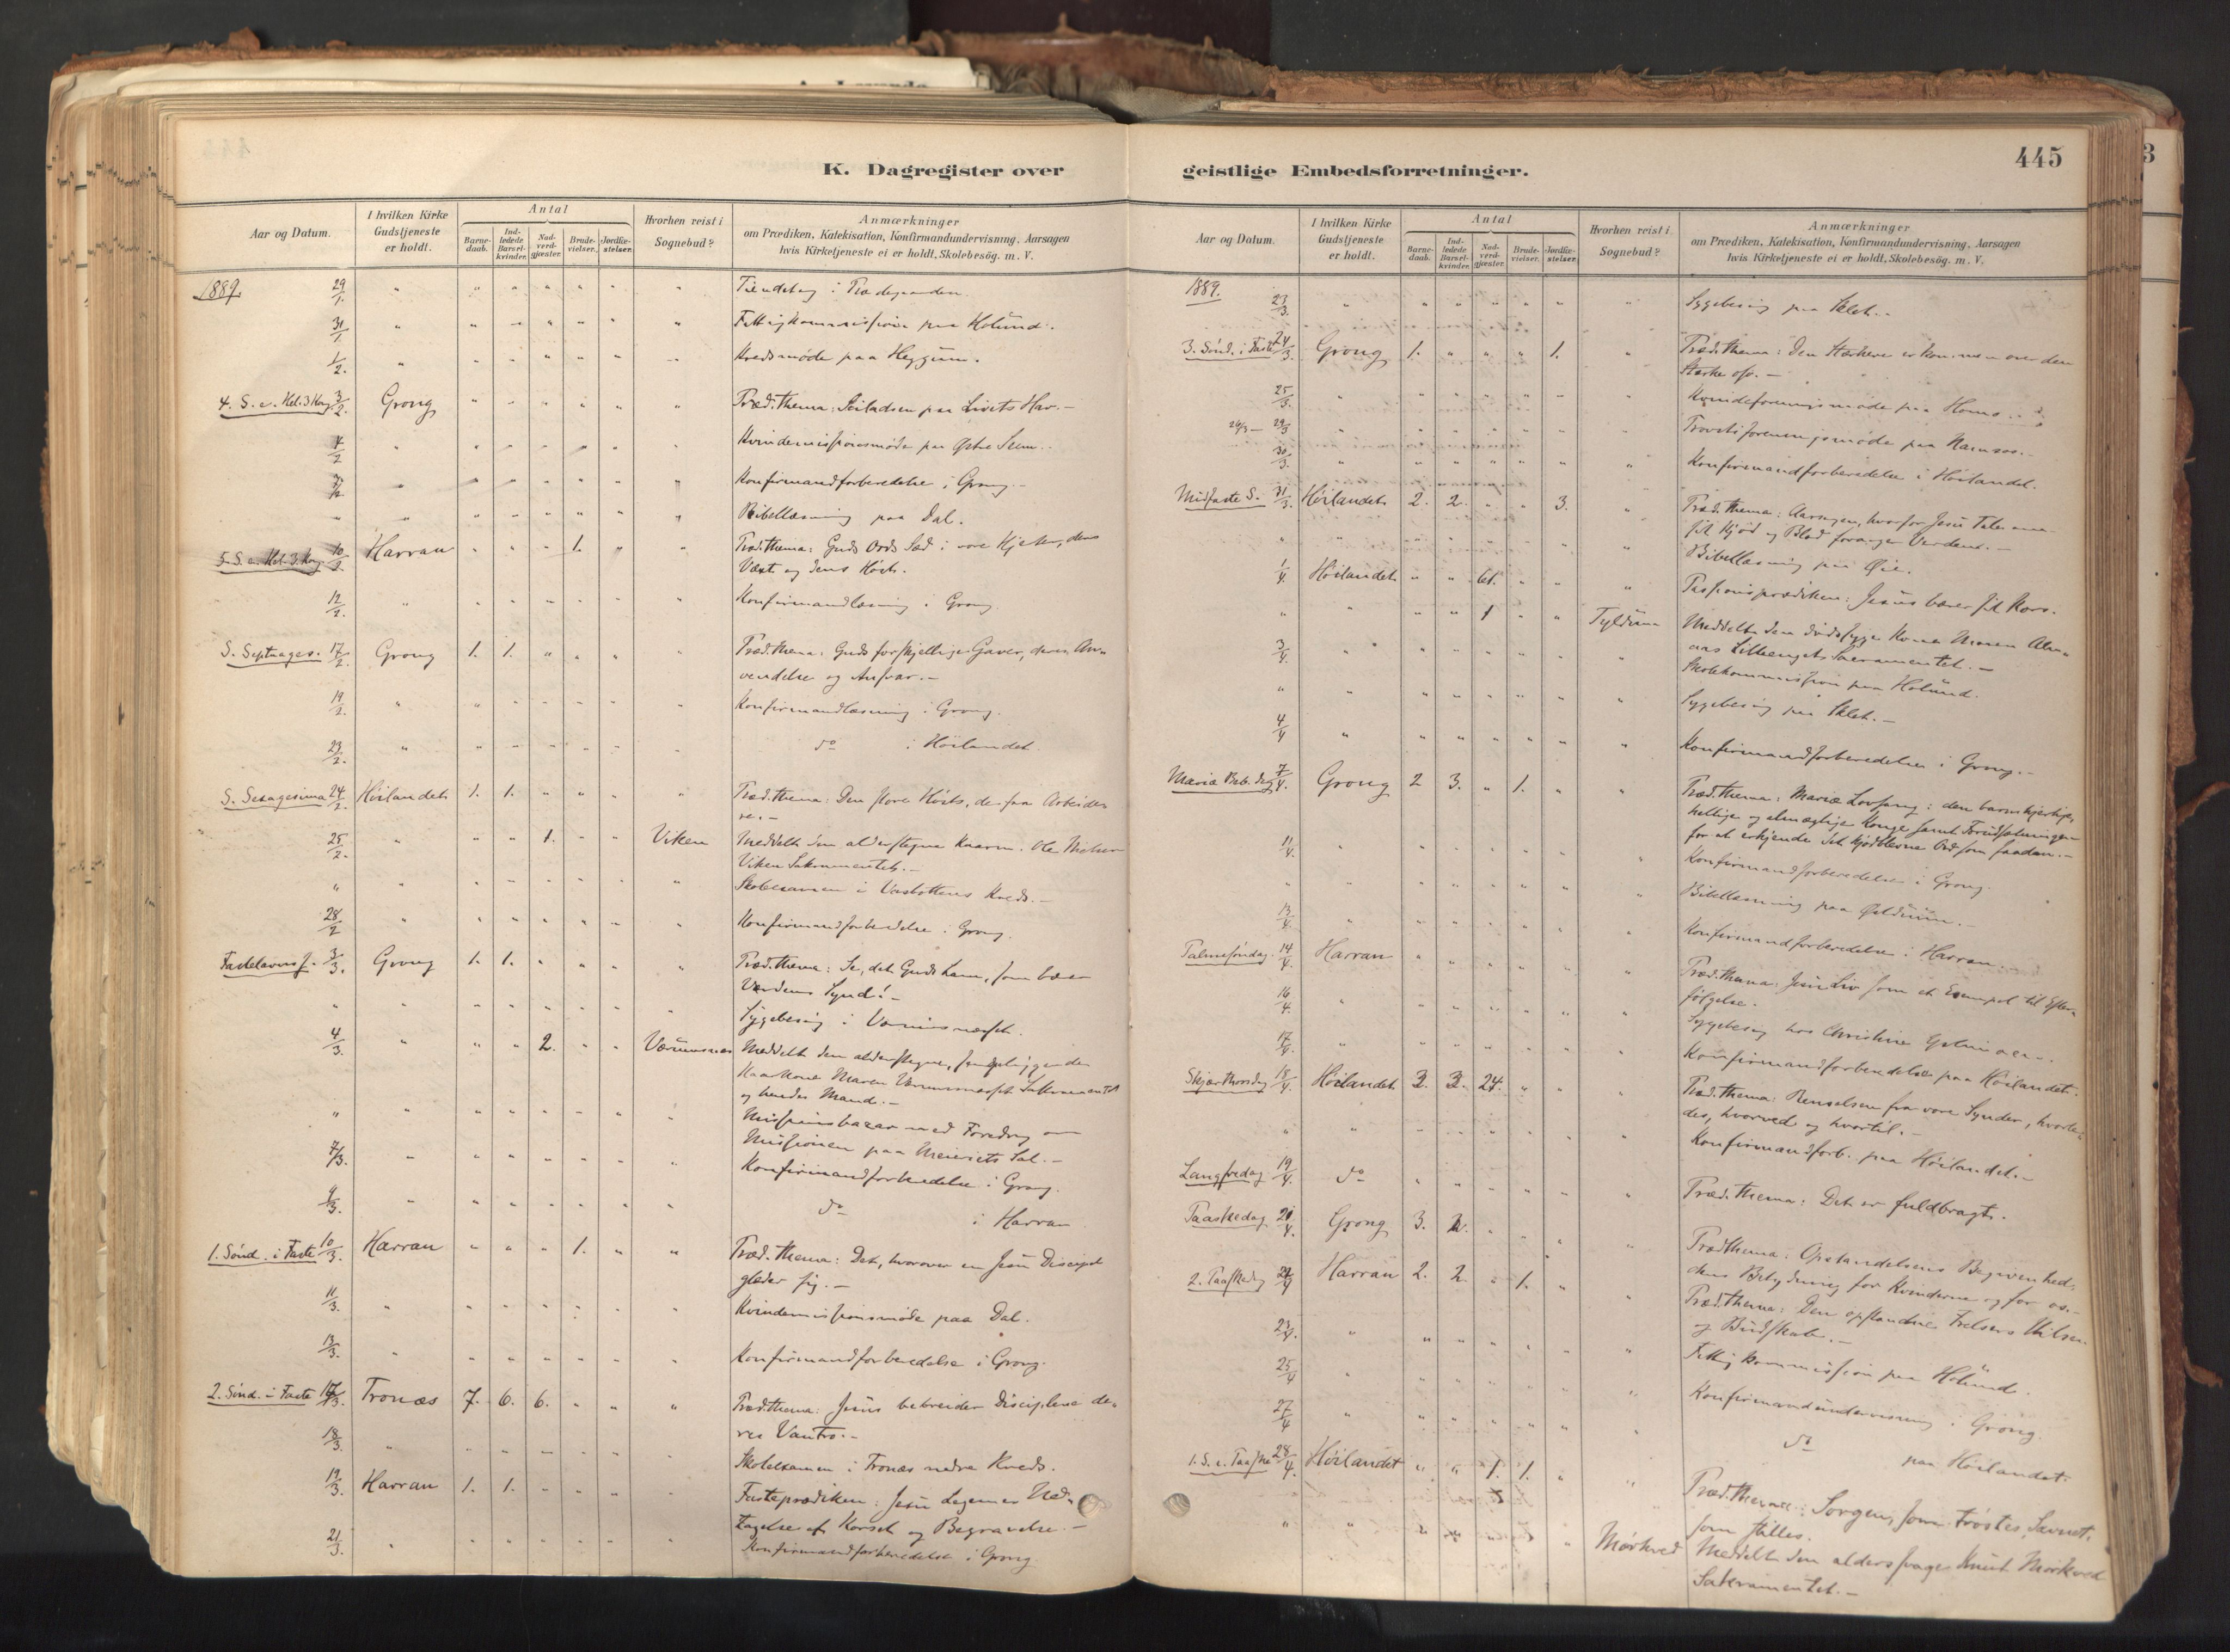 K. Dagregister over
Aar og Datum.
I hvilken Kirke Gudstjeneste er holdt.
Antal
Barnedaab.
Indledede Barselkvinder.
Nadverdgjæster.
Brudevielser.
Jordfæstelser.
Hvorhen reist i Sognebud?
Anmærkninger
om Prædiken, Katekisation, Konfirmandundervisning, Aarsagen
hvis Kirketjeneste ei er holdt, Skolebesög. m. V.
1889. 29/1. " " " " " " "
31/1. " " " " " " " Fattigkommission paa Holund.
1/2. " " " " " " " Kredsmöde paa Heggum.
4. S. e. Hel. 3 Kong. 3/2. Grong " " " " " " Præd. thema: Seiladsen paa Livets Hav. -
4/2 " " " " " " " Kvindemissionsmöde paa Østre Seem.
" " " " " " " Konfirmandforberedelse i Grong. -
" " " " " " " " Bibellæsning paa Dal.
5. S. e. Hel. 3 Kong 10/2. Harran " " " 1. " " Præd. thema: Guds Ords Sæd i vore Hjerter, dens
Vext og dens Höst.
12/2. " " " " " " " Konfirmandlæsning i Grong
S. Septuages. 17/2. Grong 1. 1. " " " " Præd. thema: Guds forskjellige Gaver, deres An-
vendelse og Ansvar. -
19/2. " " " " " " " Konfirmandlæsning i Grong.
23/2. " " " " " " " do i Höilandet
S. Sexagesima 24/2. Höilandet 1. 1. " " " " Præd. thema: Den store Höst, de faa Arbeide-
re. -
25/2. " " " 1. " " Viken Meddelt den alderstegne Kaarm. Ole Nielsen
Viken Sakramentet. -
" " " " " " " " Skoleexamen i Kreds. -
28/2 " " " " " " " Konfirmandforberedelse i Grong.
Fastelavns S. 3/3. Grong 1. 1. " " " " Præd. thema: Se, det Guds Lam, som bærer
Verdens Synd! -
" " " " " " " " Sygebesög i
4/3. " " " 2. " " Værumsnes Meddelt den alderstegne, sengeliggende
Kaarkone Maren Sakramentet
og hendes Mand. -
" " " " " " " " Missionsbazar med Foredrag om
Missionen paa Meieriets Sal. -
7/3. " " " " " " " Konfirmandforberedelse i Grong.
9/3. " " " " " " " do i Harran
1. Sönd. i Faste 10/3. Harran " " " 1. " " Præd. thema: Det, hvorover en Jesu Discipel
glæder sig. -
11/3. " " " " " " " Kvindemissionsmöde paa Dal.
13/3. " " " " " " " Konfirmandforberedelse i Grong.
2. Sönd. i Faste 17/3. Tronæs 7. 6. 6. " " " Præd. thema: Jesus bebreider Disciplene de-
res Vantro. -
18/3. " " " " " " " Skoleexamen i Tronæs nedre Kreds.
19/3. Harran 1. 1. " " " " Fasteprædiken: Jesu Legemes Ned-
tagelse af Korset og Begravelse. -
21/3. " " " " " " " Konfirmandforberedelse i Grong
geistlige Embedsforretninger.
445
Aar og Datum.
I hvilken Kirke Gudstjeneste er holdt.
Antal
Barnedaab.
Indledede Barselkvinder.
Nadverdgjæster.
Brudevielser.
Jordfæstelser.
Hvorhen reist i Sognebud?
Anmærkninger
om Prædiken, Katekisation, Konfirmandundervisning, Aarsagen
hvis Kirketjeneste ei er holdt, Skolebesög. m. V.
1889. 23/3. " " " " " " " Sygebesög paa Sklet. -
3. Sönd. i Faste 24/3. Grong 1. " " " 1. " Præd. thema: Den Stærkere er kommen over den
Stærke osv. -
25/3. " " " " " " " Kvindeforeningsmöde paa
26/3 - 29/3 " " " " " " " Provstiforeningsmöde paa Namsos. -
30/3. " " " " " " " Konfirmandforberedelse i Höilandet.
Midfaste S. 31/3. Höilandet 2. 2. " " 3. " Præd. thema: Aarsagen, hvorfor Jesu Tale om
sit Kjöd og Blod forarger Verden. -
" " " " " " " " Bibellæsning paa Øie.
1/4. Höilandet " " 61. " " " Passionsprædiken: Jesus bærer sit Kors.
" " " " 1 " " Tyldum Meddelt den dödssyge Kone Maren
Sacramentet. -
3/4. " " " " " " " Skolekommission paa Holund.
" " " " " " " " Sygebesög paa Sklet. -
4/4 " " " " " " " Konfirmandforberedelse i Grong. -
Mariæ Beb. dag 7/4. Grong 2 3. " 1. " " Præd. thema: Mariæ Lovsang: den barmhjertige,
hellige og almægtige Konge samt Forudsætningen
for at erkjende det kjödblevne Ord som saadan. -
11/4. " " " " " " " Konfirmandforberedelse i Grong.
" " " " " " " " Bibellæsning paa
13/4. " " " " " " " Konfirmandforberedelse i Harran. -
Palmesöndag. 14/4. Harran " " " " " " Præd. thema: Jesu Liv som et Exempel til Efter-
fölgelse.
16/4. " " " " " " " Sygebesög hos Christine
17/4. " " " " " " " Konfirmandforberedelse paa Höilandet.
Skjærthorsdag 18/4. Höilandet 3. 3. 24. " " " Præd. thema: Renselsen fra vore Synder, hvorle-
des, hvorved og hvortil. -
" " " " " " " " Konfirmandforb. paa Höilandet. -
Langfredag 19/4. do " " " " " " Præd. thema: Det er fuldbragt.
Paaskedag 21/4. Grong 3. 2. " " " " Præd. thema: Opstandelsens Begivenhed,
dens Betydning for Kvinderne og for os. -
2. Paaskedag 22/4 Harran 2. 2. " 1. " " Præd. thema: Den opstandne Frelsers Hilsen
og Budskab. -
23/4. " " " " " " " Fattigkommission paa Holund.
25/4 " " " " " " " Konfirmandundervisning i Grong.
27/4 " " " " " " " do paa Höilandet.
1. S. e. Paaske 28/4. Höilandet " " 1. 1. " " Præd. thema: Sorgen, som tröstes, Savnet,
som stilles.
" " " " " " " Mörkved Meddelt den aldersvage Knut Mörkved
Sakramentet. -